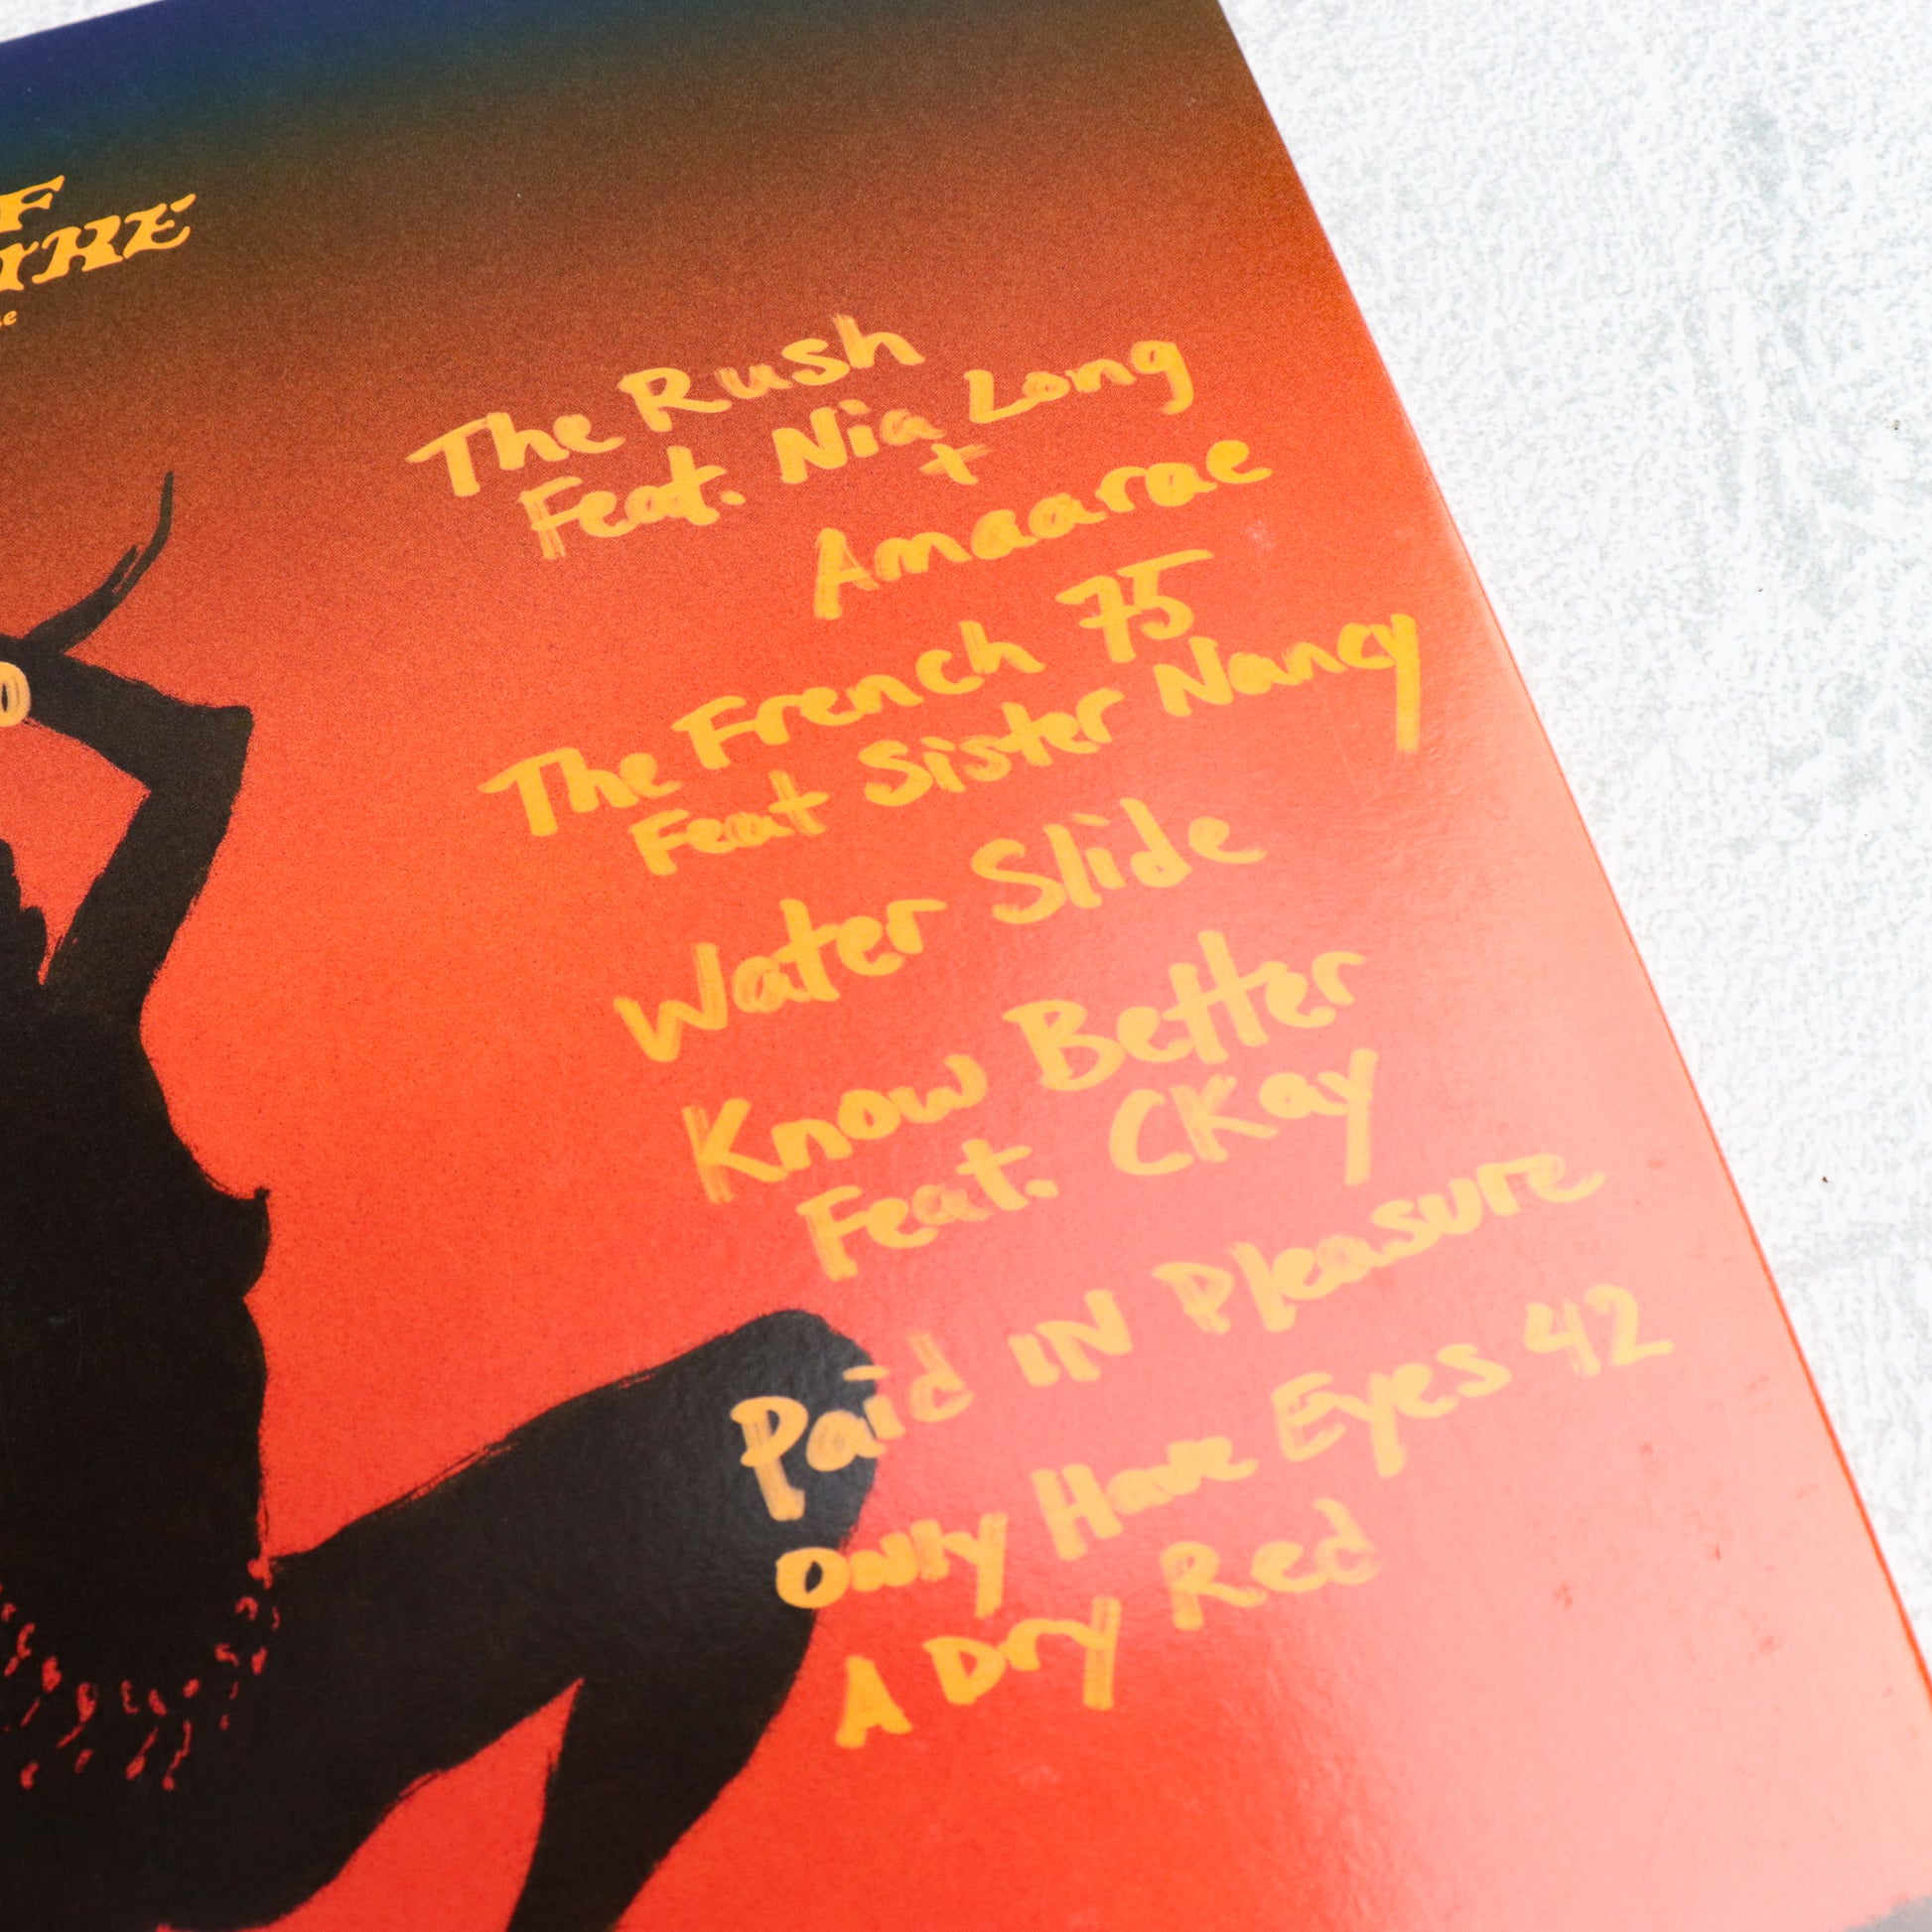 The Rush
Feat. Nia Long
+
Amaarae
The French 75
Feat Sister Nancy
Water Slide
Know Better
Feat. CKay
Paid IN Pleasure
Only Have Eyes 42
A Dry Red